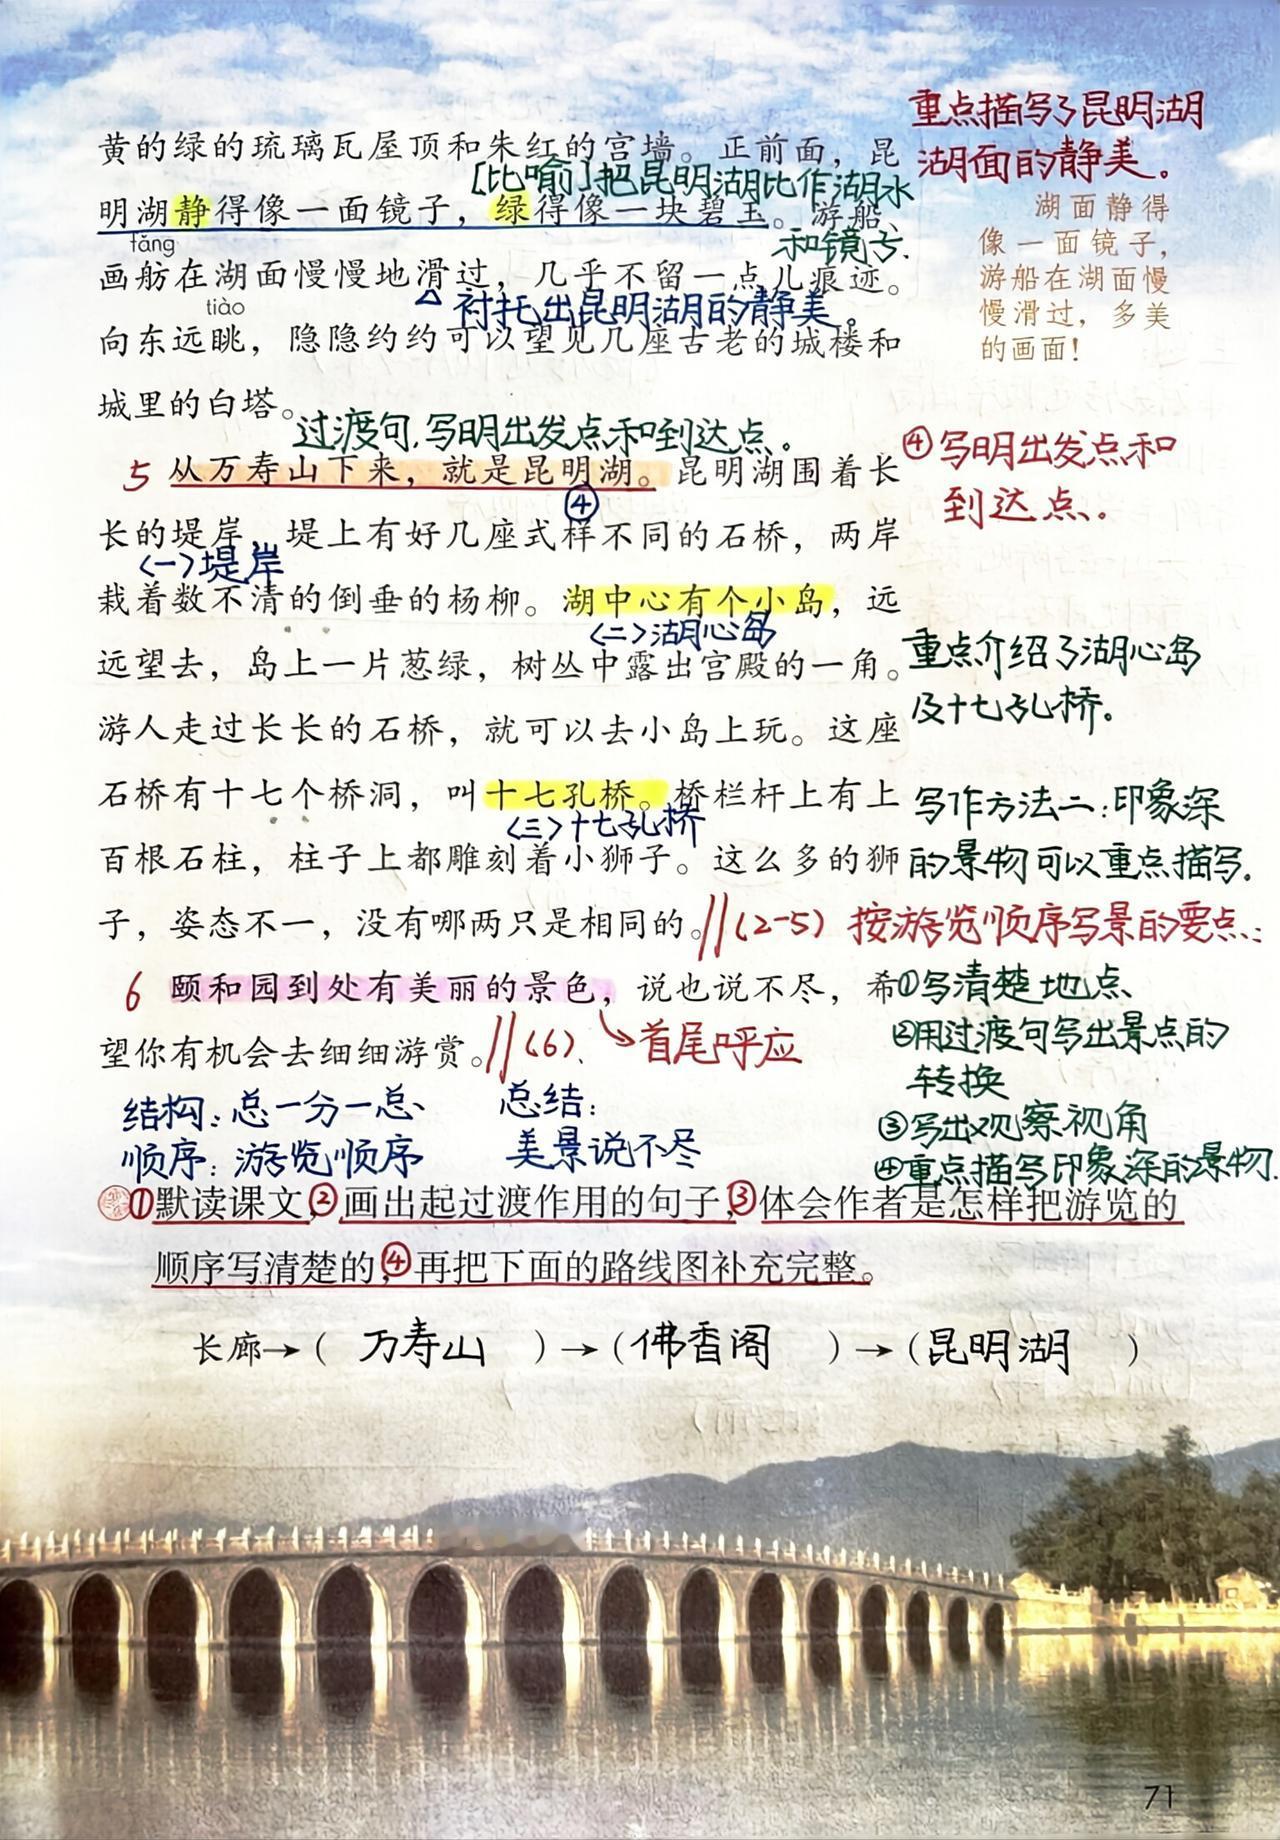 重点描写了昆明湖
湖面的静美。
黄的绿的琉璃瓦屋顶和朱红的宫墙。正前面，昆
[比喻]把昆明湖比作湖水
和镜子.
明湖静得像一面镜子，绿得像一块碧玉。游船、
湖面静得
像一面镜子，
游船在湖面慢
慢滑过，多美
的画面！
fǎng
画舫在湖面慢慢地滑过，几乎不留一点儿痕迹。
△衬托出昆明湖的静美。
tiào
向东远眺，隐隐约约可以望见几座古老的城楼和
城里的白塔。
过渡句.写明出发点和到达点。
5 从万寿山下来，就是昆明湖。昆明湖围着长
④
④写明出发点和
到达点。
长的堤岸，堤上有好几座式样不同的石桥，两岸
<一>堤岸
栽着数不清的倒垂的杨柳。湖中心有个小岛，远
<二>湖心岛
远望去，岛上一片葱绿，树丛中露出宫殿的一角。
重点介绍了湖心岛
及十七孔桥。
游人走过长长的石桥，就可以去小岛上玩。这座
石桥有十七个桥洞，叫十七孔桥。桥栏杆上有上
<三>十七孔桥
写作方法二：印象深
的景物可以重点描写.
百根石柱，柱子上都雕刻着小狮子。这么多的狮
子，姿态不一，没有哪两只是相同的。//(2-5) 按游览顺序写景的要点：
6 颐和园到处有美丽的景色，说也说不尽，希
①写清楚地点
②用过渡句写出景点的
转换
③写出观察视角
④重点描写印象深的景物.
望你有机会去细细游赏。//(6)、首尾呼应
结构：总一分一总
顺序：游览顺序
总结：
美景说不尽
①默读课文，②画出起过渡作用的句子，③体会作者是怎样把游览的
顺序写清楚的，④再把下面的路线图补充完整。
长廊→（ 万寿山 ）→（佛香阁 ）→（昆明湖 ）
71